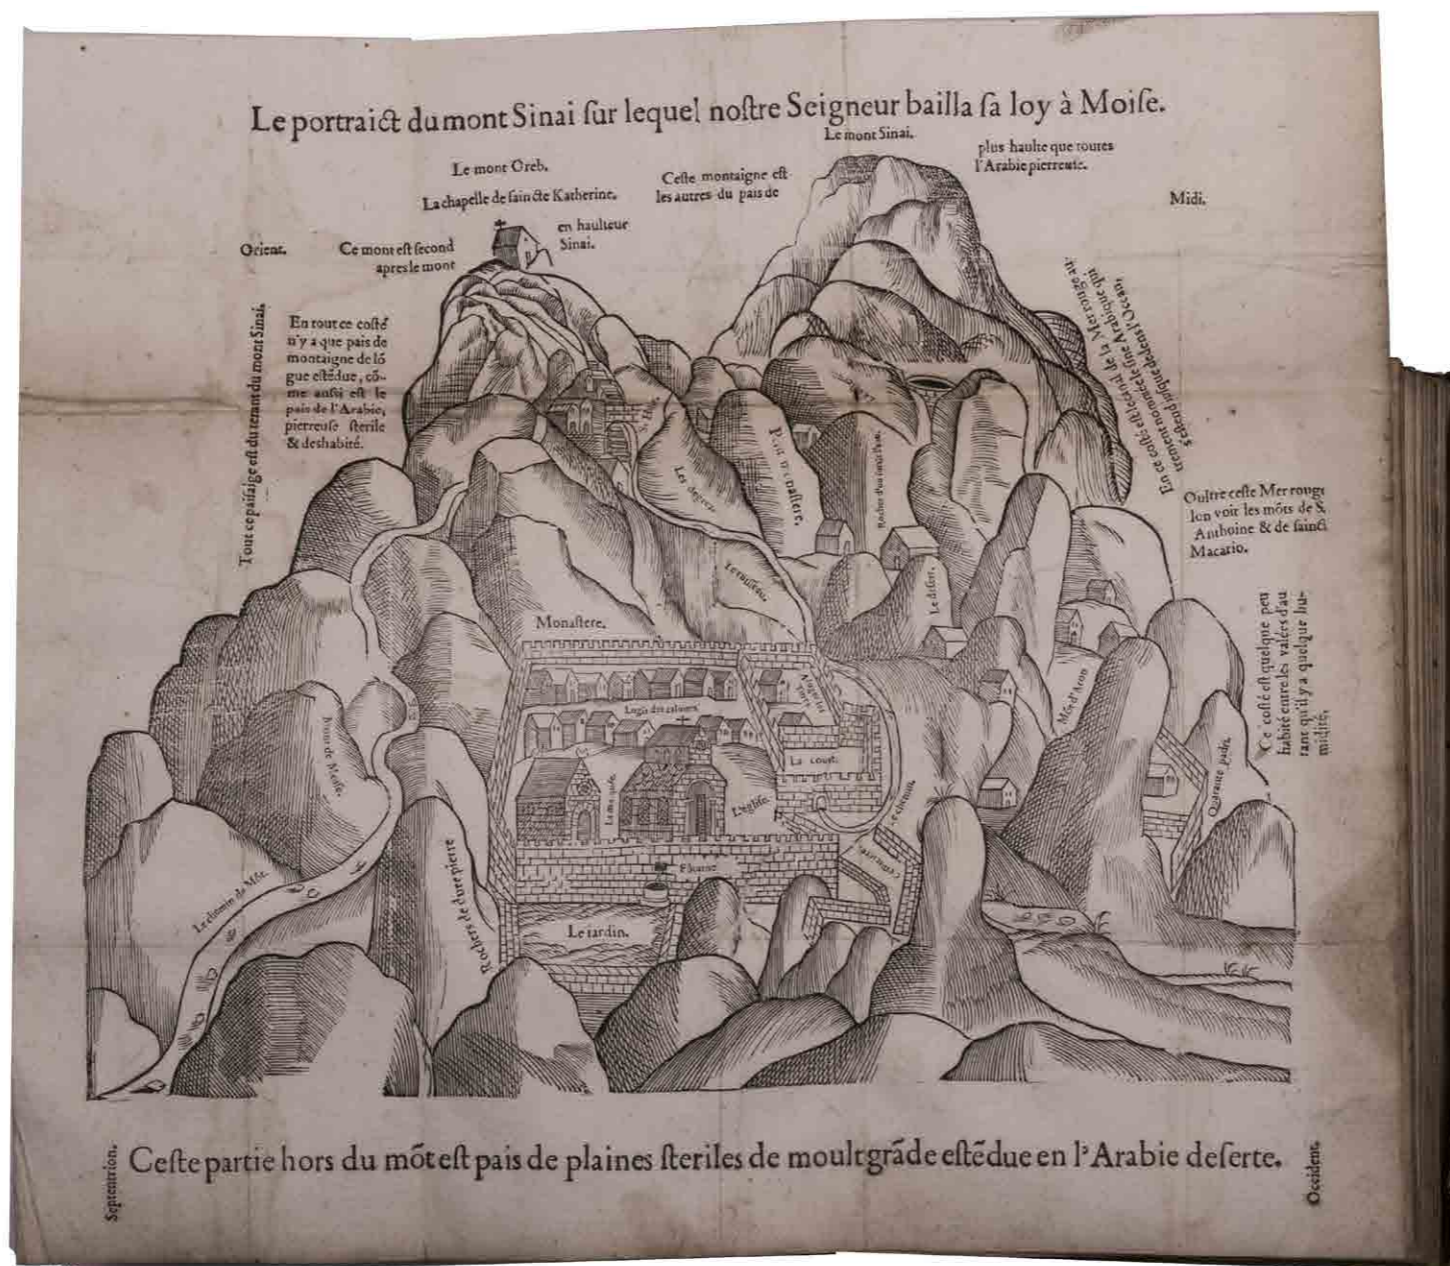 Le portraict du mont Sinai sur lequel nostre Seigneur bailla sa loy à Moise.
Le mont Sinai.
Ceste montaigne est
plus haulte que toutes
les autres du pais de
l'Arabie pierreuse.
Midi.
Le mont Oreb.
La chapelle de saincte Katherine.
Orient.
Ce mont est second
en haulteur
apres le mont
Sinai.
Tout ce paisaige est du
mont Sinai.
En tout ce costé
n'y a que pais de
montaigne de lõ
gue estẽdue, cõ-
me aussi est le
pais de l'Arabie,
pierreuse sterile
& deshabité.
En ce costé est le canal de la Mer rouge au-
trement nommée le sine Arabique qui
s'estend jusques dedens l'Ocean.
Oultre ceste Mer rouge
lon voit les mõts de S.
Anthoine & de sainct
Macario.
Ce costé est quelque peu
habité entre les valées d'au
tant qu'il y a quelque hu-
midité.
Les degrez.
Le ruisseau.
Le desert.
Monastere.
Mõt d'Aron
Quarante padri.
La court.
L'eglise.
Le chemin.
Le iardin.
Rochers de dure pierre
Le chemin de Mõt.
Septentrion.
Ceste partie hors du mõt est pais de plaines steriles de moult grãde estẽdue en l'Arabie deserte.
Occident.